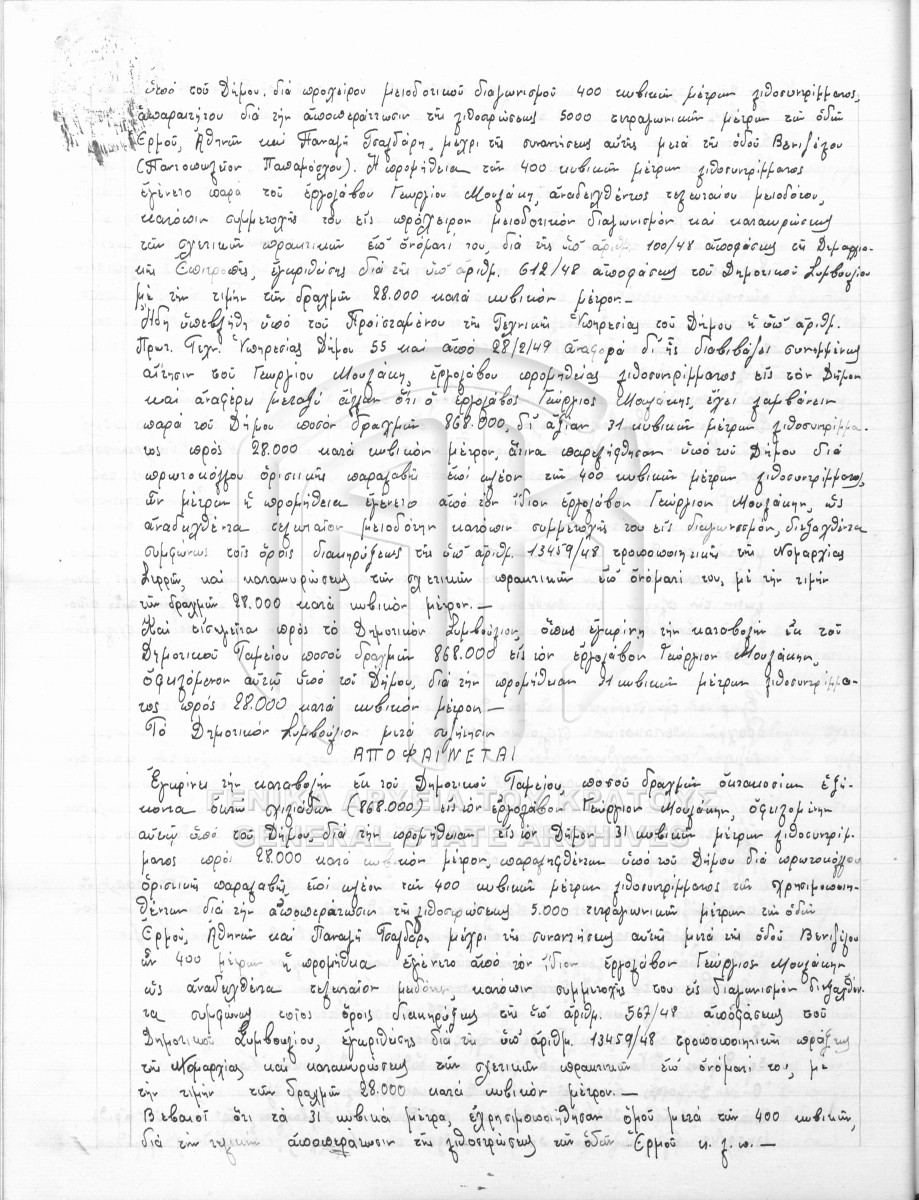 ὑπό τοῦ Δήμου, διά προχείρου μειοδοτικοῦ διαγωνισμοῦ 400 κυβικῶν μέτρων λιθοσυντρίμματος,
ἀπαραιτήτου διά τήν ἀποπεράτωσιν τῆς λιθοστρώσεως 5000 τετραγωνικῶν μέτρων τῶν ὁδῶν
Ἑρμοῦ, Ἀθηνῶν καί Παναγῆ Τσαλδάρη, μέχρι τῆς συναντήσεως αὐτῆς μετά τῆς ὁδοῦ Βενιζέλου
(Παντοπωλεῖον Παπαμόσχου). Ἡ προμήθεια τῶν 400 κυβικῶν μέτρων λιθοσυντρίμματος
ἐγένετο παρά τοῦ ἐργολάβου Γεωργίου Μουζάκη, ἀναδειχθέντος τελευταίου μειοδότου,
κατόπιν συμμετοχῆς του εἰς πρόχειρον μειοδοτικόν διαγωνισμόν καί κατακυρώσεως
τῶν σχετικῶν πρακτικῶν ἐπ' ὀνόματί του, διά τῆς ὑπ' ἀριθμ. 100/48 ἀποφάσεως τῆς Δημαρχια-
κῆς Ἐπιτροπῆς, ἐγκριθείσης διά τῆς ὑπ' ἀριθμ. 612/48 ἀποφάσεως τοῦ Δημοτικοῦ Συμβουλίου
μέ τήν τιμήν τῶν δραχμῶν 28.000 κατά κυβικόν μέτρον.—
Ἤδη ὑπεβλήθη ὑπό τοῦ Προϊσταμένου τῆς Τεχνικῆς Ὑπηρεσίας τοῦ Δήμου ἡ ὑπ' ἀριθμ.
Πρωτ. Τεχν. Ὑπηρεσίας Δήμου 55 καί ἀπό 28/2/49 ἀναφορά δι' ἧς διαβιβάζει συνημμένως
αἴτησιν τοῦ Γεωργίου Μουζάκη, ἐργολάβου προμηθείας λιθοσυντρίμματος εἰς τόν Δῆμον
καί ἀναφέρει μεταξύ ἄλλων ὅτι ὁ ἐργολάβος Γεώργιος Μουζάκης, ἔχει λαμβάνειν
παρά τοῦ Δήμου ποσόν δραχμῶν 868.000, δι' ἀξίαν 31 κυβικῶν μέτρων λιθοσυντρίμμα-
τος πρός 28.000 κατά κυβικόν μέτρον, ἅτινα παρελήφθησαν ὑπό τοῦ Δήμου διά
πρωτοκόλλου ὁριστικῆς παραλαβῆς ἐπί πλέον τῶν 400 κυβικῶν μέτρων λιθοσυντρίμματος,
ὧν μέτρων ἡ προμήθεια ἐγένετο ἀπό τόν ἴδιον ἐργολάβον Γεώργιον Μουζάκην, ὡς
ἀναδειχθέντα τελευταῖον μειοδότην κατόπιν συμμετοχῆς του εἰς διαγωνισμόν, διεξαχθέντα
συμφώνως τοῖς ὅροις διακηρύξεως τῆς ὑπ' ἀριθμ. 13459/48 τροποποιητικῆς τῆς Νομαρχίας
Σερρῶν, καί κατακυρώσεως τῶν σχετικῶν πρακτικῶν ἐπ' ὀνόματί του, μέ τήν τιμήν
τῶν δραχμῶν 28.000 κατά κυβικόν μέτρον.—
Καί εἰσηγεῖται πρός τό Δημοτικόν Συμβούλιον, ὅπως ἐγκρίνῃ τήν καταβολήν ἐκ τοῦ
Δημοτικοῦ Ταμείου ποσοῦ δραχμῶν 868.000 εἰς τόν ἐργολάβον Γεώργιον Μουζάκην,
ὀφειλόμενον αὐτῷ ὑπό τοῦ Δήμου, διά τήν προμήθειαν 31 κυβικῶν μέτρων λιθοσυντρίμμα-
τος πρός 28.000 κατά κυβικόν μέτρον.—
Τό Δημοτικόν Συμβούλιον μετά συζήτησιν
ΑΠΟΦΑΙΝΕΤΑΙ
Ἐγκρίνει τήν καταβολήν ἐκ τοῦ Δημοτικοῦ Ταμείου ποσοῦ δραχμῶν ὀκτακοσίων ἑξή-
κοντα ὀκτώ χιλιάδων (868.000) εἰς τόν ἐργολάβον Γεώργιον Μουζάκην, ὀφειλομένην
αὐτῷ ὑπό τοῦ Δήμου, διά τήν προμήθειαν εἰς τόν Δῆμον 31 κυβικῶν μέτρων λιθοσυντρίμ-
ματος πρός 28.000 κατά κυβικόν μέτρον, παραληφθέντων ὑπό τοῦ Δήμου διά πρωτοκόλλου
ὁριστικῆς παραλαβῆς, ἐπί πλέον τῶν 400 κυβικῶν μέτρων λιθοσυντρίμματος τῶν χρησιμοποιη-
θέντων διά τήν ἀποπεράτωσιν τῆς λιθοστρώσεως 5.000 τετραγωνικῶν μέτρων τῶν ὁδῶν
Ἑρμοῦ, Ἀθηνῶν καί Παναγῆ Τσαλδάρη μέχρι τῆς συναντήσεως αὐτῆς μετά τῆς ὁδοῦ Βενιζέλου
ὧν 400 μέτρων ἡ προμήθεια ἐγένετο ἀπό τόν ἴδιον ἐργολάβον Γεώργιον Μουζάκην
ὡς ἀναδειχθέντα τελευταῖον μειοδότην, κατόπιν συμμετοχῆς του εἰς διαγωνισμόν διεξαχθέν-
τα συμφώνως τοῖς ὅροις διακηρύξεως τῆς ὑπ' ἀριθμ. 567/48 ἀποφάσεως τοῦ
Δημοτικοῦ Συμβουλίου, ἐγκριθείσης διά τῆς ὑπ' ἀριθμ. 13459/48 τροποποιητικῆς πράξεως
τῆς Νομαρχίας καί κατακυρώσεως τῶν σχετικῶν πρακτικῶν ἐπ' ὀνόματί του, μέ
τήν τιμήν τῶν δραχμῶν 28.000 κατά κυβικόν μέτρον.—
Βεβαιοῖ ὅτι τά 31 κυβικά μέτρα, ἐχρησιμοποιήθησαν ὁμοῦ μετά τῶν 400 κυβικῶν,
διά τήν τελικήν ἀποπεράτωσιν τῆς λιθοστρώσεως τῶν ὁδῶν Ἑρμοῦ κ.λ.π.—
ΓΕΝΙΚΑ ΑΡΧΕΙΑ ΤΟΥ ΚΡΑΤΟΥΣ
GENERAL STATE ARCHIVES